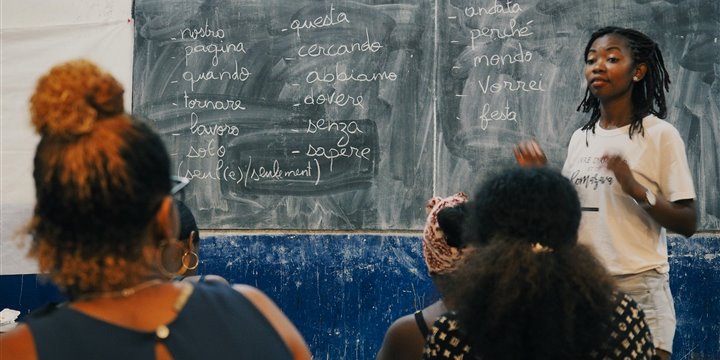 - nostro
- pagina
- quando
- tornare
- lavoro
- solo
seul(e)/seulement)
- questa
- cercando
- abbiamo
- dovere
- senza
- sapere
- andata
- perché
- mondo
- Vorrei
- festa